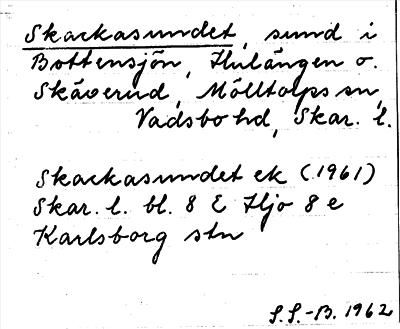 Skackasundet, sund i
Bottensjön, Hulängen o.
Skåverud, Mölltorps sn,
Vadsbo hd, Skar. l.
Skackasundet ek (1961)
Skar. l. bl. 8 E Hjo 8 e
Karlsborg stn
S.S.-B. 1962